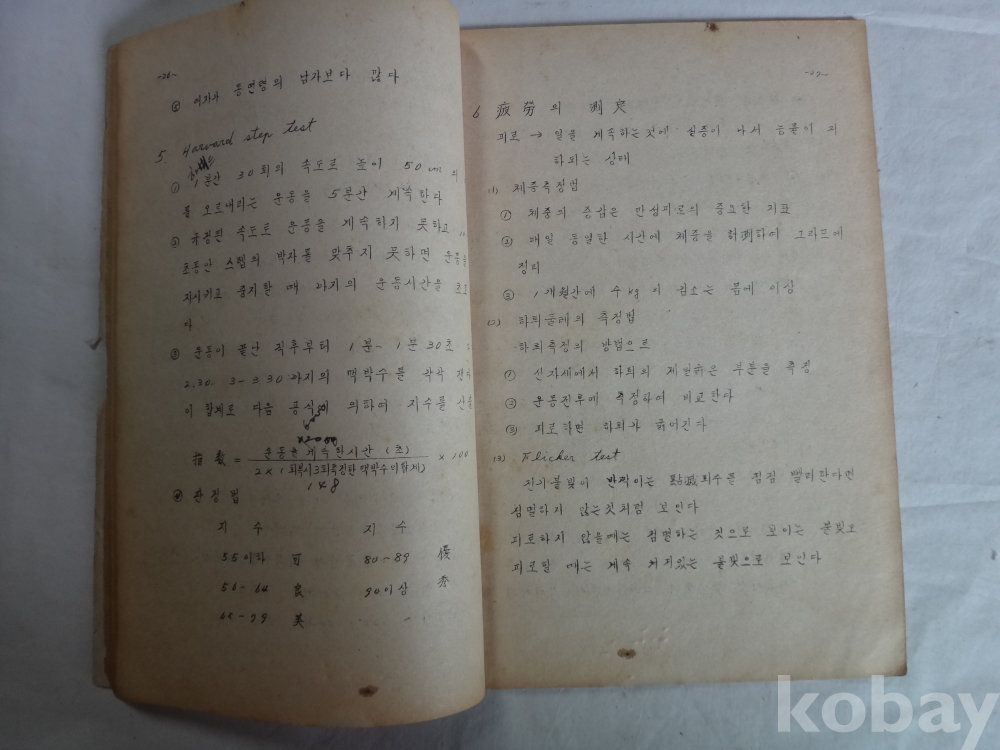 -26-
⑥ 여자가 동연령의 남자보다 많다
5. Harvard step test
① 1분간 30회의 속도로 높이 50cm의
를 오르내리는 운동을 5분간 계속한다
② 규정된 속도로 운동을 계속하지 못하고
초동안 스텝의 박자를 맞추지 못하면 운동을
까지의 운동시간을 초로
다
③ 운동이 끝난 직후부터 1분- 1분30초
2.30. 3-3.30까지의 맥박수를 각각
이 합계로 다음 공식에 의하여 지수를 산출
指数 = 운동을 계속한시간 (초) × 100
2 × (회복시3회측정한 맥박수의합계)
148
④ 판정법
지수 지수
55이하 可 80-89 優
56-64 良 90이상 秀
65-79 美
-27-
6 疲勞의 測定
피로 → 일을 계속하는것에 싫증이 나서 능률이 저
하되는 상태
(1) 체중측정법
① 체중의 증감은 만성피로의 중요한 지표
② 매일 동일한 시간에 체중을 計測하여 그라프에
정리
③ 1개월간에 수kg의 감소는 몸에 이상
(2) 하퇴둘레의 측정법
하퇴측정의 방법으로
① 선자세에서 하퇴의 제일굵은 부분을 측정
② 운동전후에 측정하여 비교한다
③ 피로하면 하퇴가 굵어진다
(3) Flicker test
전기불빛이 반짝이는 點滅회수를 점점 빨리한다면
점멸하지 않는것처럼 보인다
피로하지 않을때는 점멸하는 것으로 보이는 불빛도
피로할 때는 계속 켜져있는 불빛으로 보인다
kobay